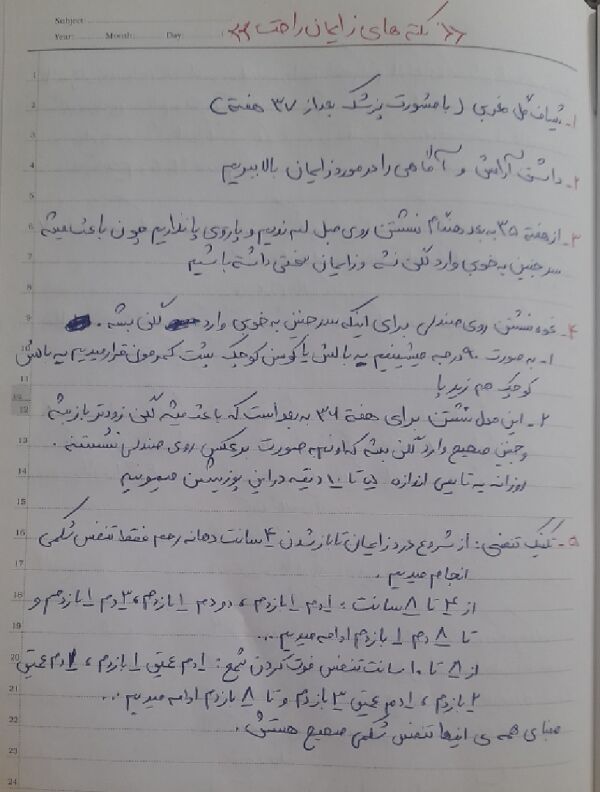 Subject:
Year: Month: Day:
نکته های زایمان راحت
1
2
3
4
5
6
7
8
9
10
11
12
13
14
15
16
17
18
19
20
21
22
23
24
۱- شیاف گل مغربی (با مشورت پزشک بعد از ۳۷ هفته)
۲- داشتن آرامش و آگاهی را در مورد زایمان بالا ببریم
۳- از هفته ۳۵ به بعد هنگام نشستن روی مبل لم ندیم و پا روی پا نذاریم چون باعث میشه
سر جنین به خوبی وارد لگن نشه و زایمان سختی داشته باشیم
۴- نحوه نشستن روی صندلی برای اینکه سر جنین به خوبی وارد لگن بشه.
۱- به صورت ۹۰ درجه میشینیم یه بالش یا کوسن کوچک پشت کمرمون قرار میدیم یه بالش
کوچک هم زیر پا
۲- این مدل نشستن برای هفته ۳۴ به بعد است که باعث میشه لگن زودتر باز بشه
و جنین صحیح وارد لگن بشه که اونم به صورت برعکس روی صندلی نشستنه.
روزانه یه تایمی اندازه ۵ تا ۱۰ دقیقه در این پوزیشن میمونیم
۵- تکنیک تنفسی: از شروع درد زایمان تا باز شدن ۴ سانت دهانه رحم فقط تنفس شکمی
انجام میدیم.
از ۴ تا ۸ سانت: ۱ دم ۱ بازدم، دو دم ۱ بازدم، ۳ دم ۱ بازدم و
تا ۸ دم ۱ بازدم ادامه میدیم...
از ۸ تا ۱۰ سانت تنفس فوت کردن شمع: ۱ دم عمیق ۱ بازدم، ۱ دم عمیق
۲ بازدم، ۱ دم عمیق ۳ بازدم و تا ۸ بازدم ادامه میدیم...
مبنای همه ی اینها تنفس شکمی صحیح هستش.